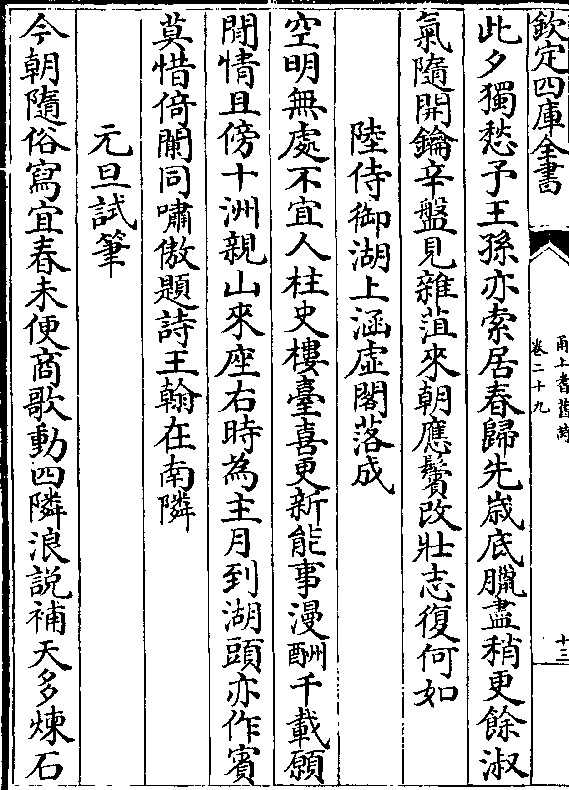 欽定四庫全書
甬上耆舊詩
卷二十九
十三
此夕獨愁予王孫亦索居春歸先嵗底臘盡稍更餘淑
氣隨開鑰辛盤見雜葅來朝應鬢改壯志復何如
陸侍御湖上涵虛閣落成
空明無處不宜人柱史樓臺喜更新能事漫酬千載願
閒情且傍十洲親山來座右時為主月到湖頭亦作賓
莫惜倚闌同嘯傲題詩王翰在南隣
元旦試筆
今朝隨俗寫宜春未便商歌動四隣浪説補天多煉石